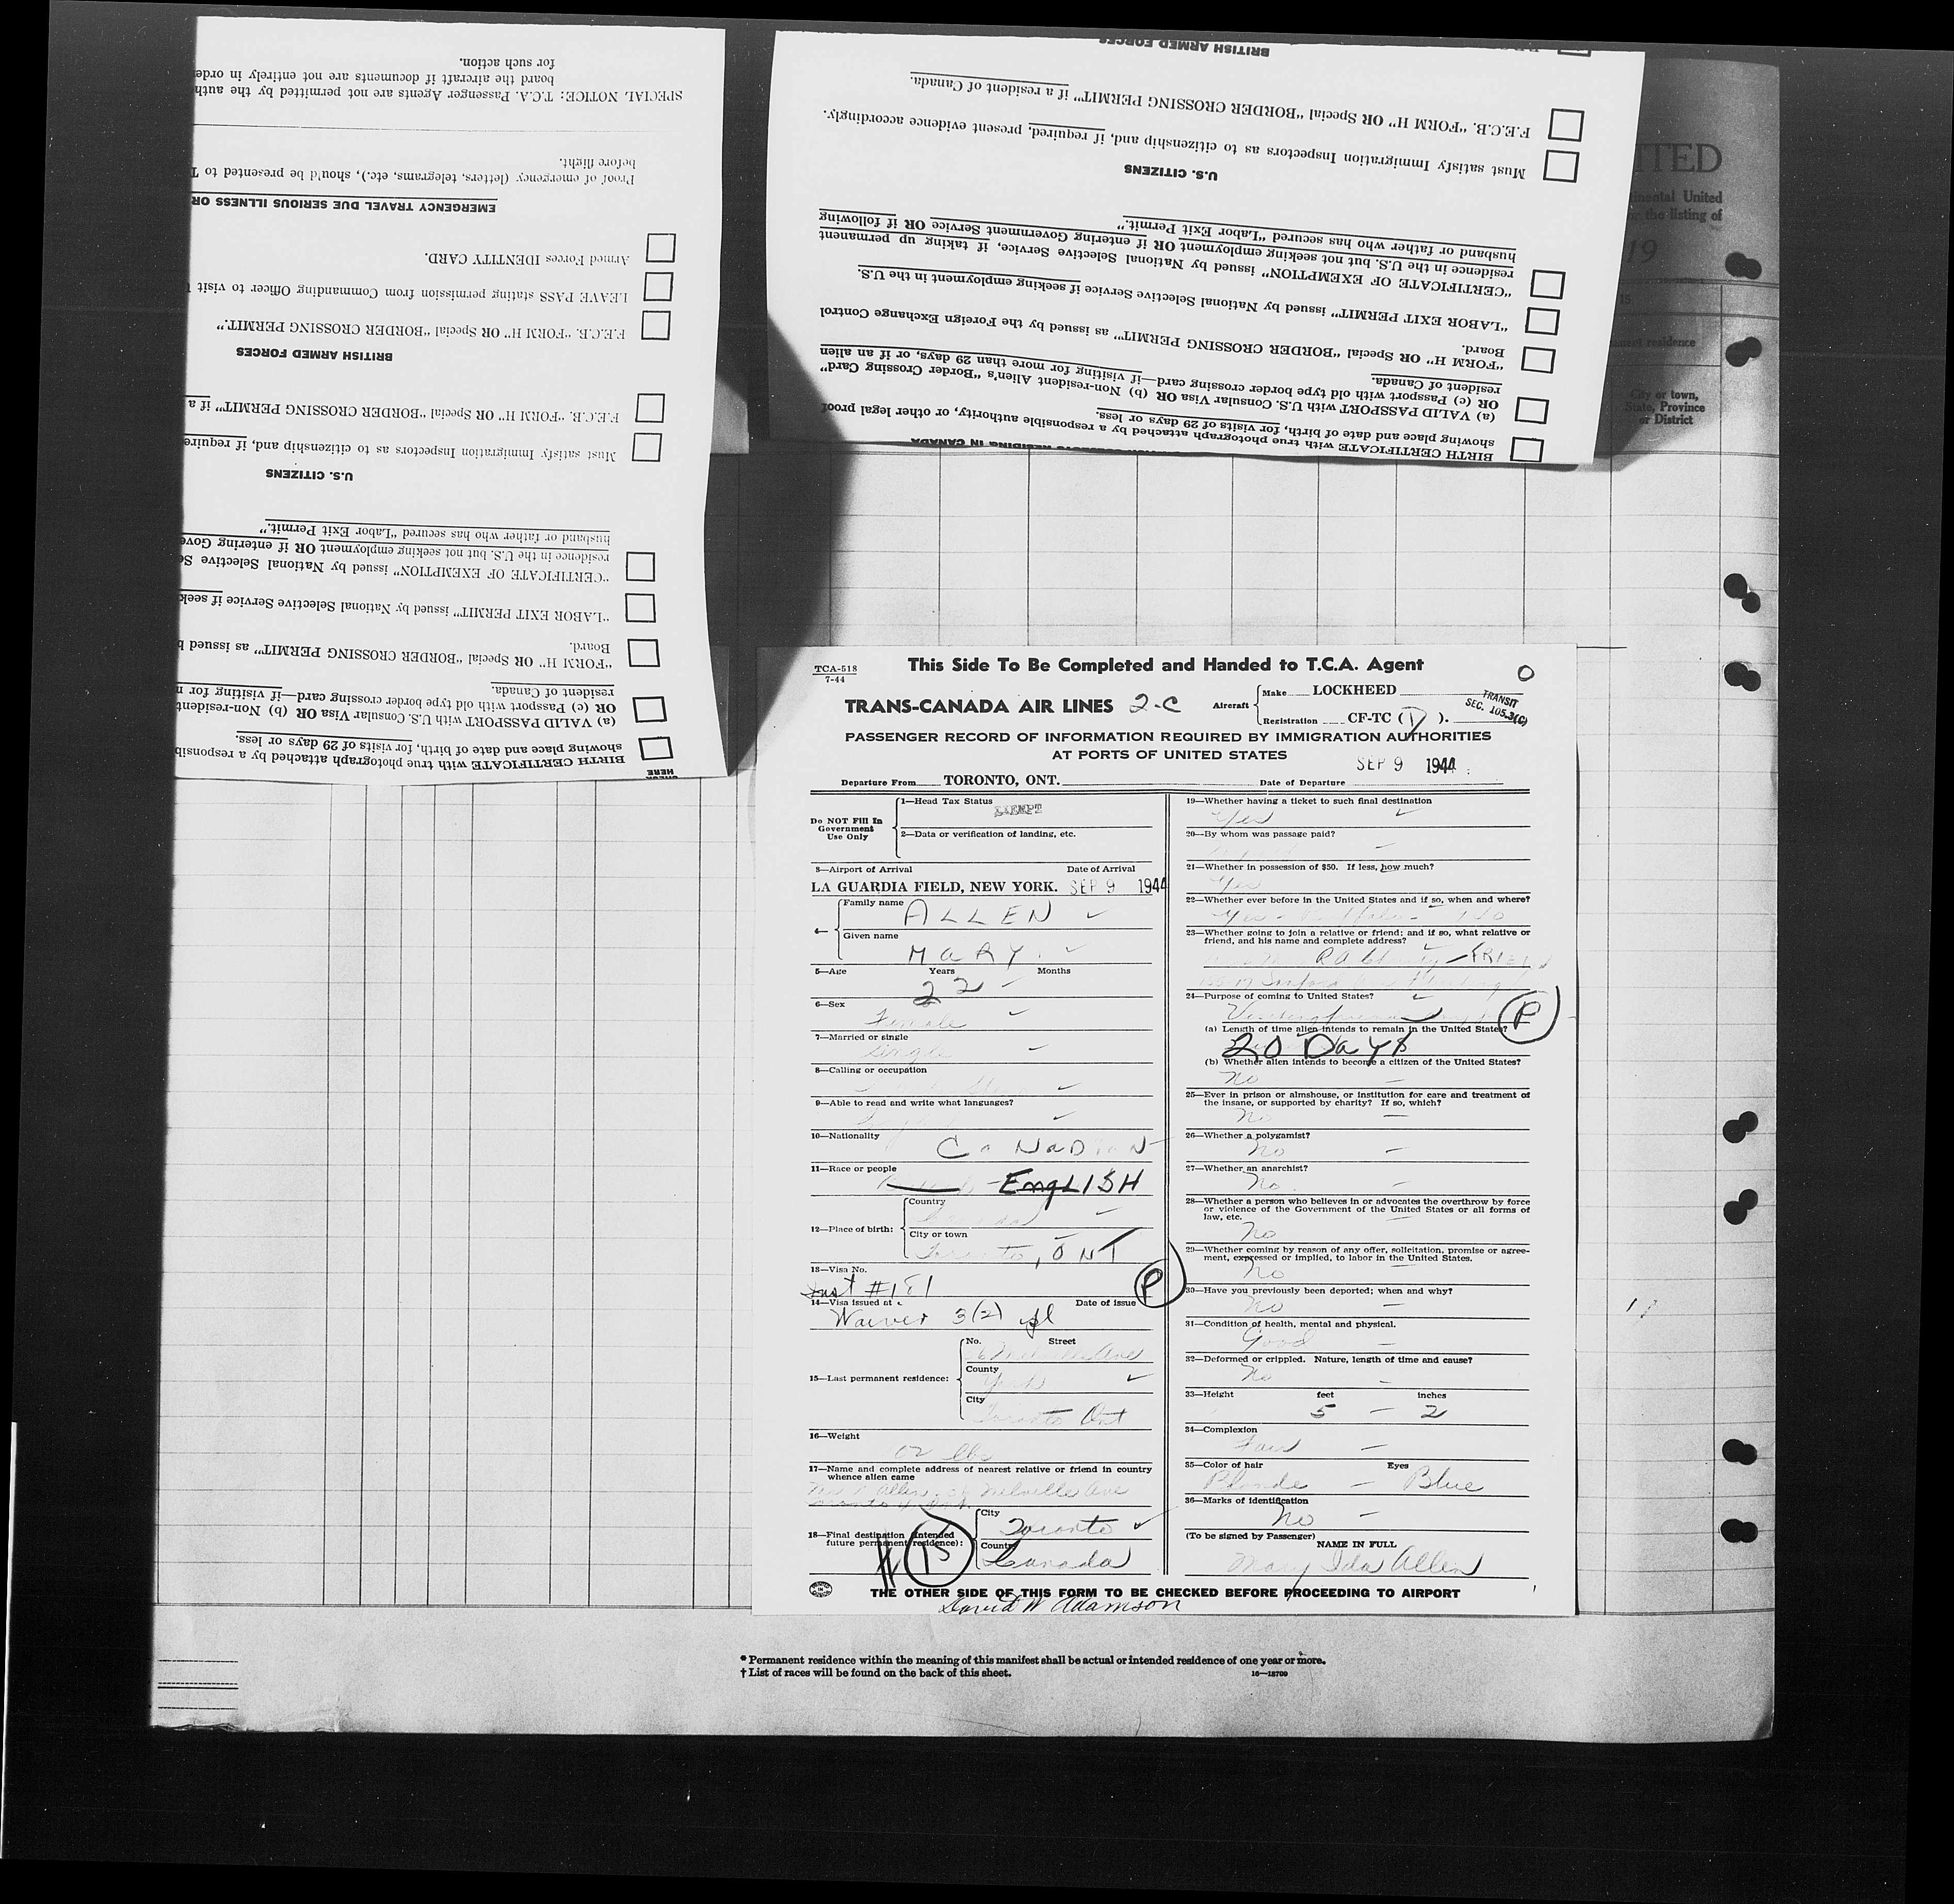 for such action.
board the aircraft if documents are not entirely in orde
SPECIAL NOTICE: T.C.A. Passenger Agents are not permitted by the auth
before flight.
Proof of emergency (letters, telegrams, etc.), should be presented to T
EMERGENCY TRAVEL DUE SERIOUS ILLNESS OR
Armed Forces IDENTITY CARD.
LEAVE PASS stating permission from Commanding Officer to visit
F.E.C.B. "FORM H" OR Special "BORDER CROSSING PERMIT."
BRITISH ARMED FORCES
F.E.C.B. "FORM H" OR Special "BORDER CROSSING PERMIT" if a
Must satisfy Immigration Inspectors as to citizenship and, if require
U.S. CITIZENS
husband or father who has secured "Labor Exit Permit."
residence in the U.S. but not seeking employment OR if entering Gove
"CERTIFICATE OF EXEMPTION" issued by National Selective Se
"LABOR EXIT PERMIT" issued by National Selective Service if seek
Board.
"FORM H" OR Special "BORDER CROSSING PERMIT" as issued b
resident of Canada.
OR (c) Passport with old type border crossing card—if visiting for m
(a) VALID PASSPORT with U.S. Consular Visa OR (b) Non-resident
showing place and date of birth, for visits of 29 days or less.
BIRTH CERTIFICATE with true photograph attached by a responsib
HERE
BRITISH ARMED FORCES
F.E.C.B. "FORM H" OR Special "BORDER CROSSING PERMIT" if a resident of Canada.
Must satisfy Immigration Inspectors as to citizenship and, if required, present evidence accordingly.
U.S. CITIZENS
husband or father who has secured "Labor Exit Permit."
residence in the U.S. but not seeking employment OR if entering Government Service OR if following
"CERTIFICATE OF EXEMPTION" issued by National Selective Service, if taking up permanent
"LABOR EXIT PERMIT" issued by National Selective Service if seeking employment in the U.S.
Board.
"FORM H" OR Special "BORDER CROSSING PERMIT" as issued by the Foreign Exchange Control
resident of Canada.
OR (c) Passport with old type border crossing card—if visiting for more than 29 days, or if an alien
(a) VALID PASSPORT with U.S. Consular Visa OR (b) Non-resident Alien's "Border Crossing Card"
showing place and date of birth, for visits of 29 days or less.
BIRTH CERTIFICATE with true photograph attached by a responsible authority, or other legal proof
RESIDING IN CANADA
ITED
inental United
the listing of
19
residence
City or town,
State, Province
or District
TCA-518
7-44
This Side To Be Completed and Handed to T.C.A. Agent
TRANS-CANADA AIR LINES 2-C
Aircraft
Make LOCKHEED
Registration CF-TC ( ).
TRANSIT
SEC. 105.3(C)
PASSENGER RECORD OF INFORMATION REQUIRED BY IMMIGRATION AUTHORITIES
AT PORTS OF UNITED STATES
SEP 9 1944
Departure From TORONTO, ONT. Date of Departure
Do NOT Fill In
Government
Use Only
1—Head Tax Status
EXEMPT
2—Data or verification of landing, etc.
3—Airport of Arrival Date of Arrival
LA GUARDIA FIELD, NEW YORK. SEP 9 1944
4—
Family name ALLEN
Given name MARY
5—Age Years Months
22
6—Sex
Female
7—Married or single
Single
8—Calling or occupation
9—Able to read and write what languages?
10—Nationality
CANADIAN
11—Race or people
ENGLISH
12—Place of birth:
Country
Canada
City or town
Toronto, ONT
13—Visa No.
#181
14—Visa issued at Date of issue
Waiver 3(2)
P
15—Last permanent residence:
No. Street
Ave
County
York
City
Toronto Ont
16—Weight
lbs
17—Name and complete address of nearest relative or friend in country
whence alien came
Allen Melville Ave
Toronto
18—Final destination (intended
future permanent residence):
#15
City
Toronto
Country
Canada
19—Whether having a ticket to such final destination
Yes
20—By whom was passage paid?
21—Whether in possession of $50. If less, how much?
Yes
22—Whether ever before in the United States and if so, when and where?
Yes
23—Whether going to join a relative or friend; and if so, what relative or
friend, and his name and complete address?
FRIEND
24—Purpose of coming to United States?
Visiting
P
(a) Length of time alien intends to remain in the United States?
20 Days
(b) Whether alien intends to become a citizen of the United States?
No
25—Ever in prison or almshouse, or institution for care and treatment of
the insane, or supported by charity? If so, which?
No
26—Whether a polygamist?
No
27—Whether an anarchist?
No
28—Whether a person who believes in or advocates the overthrow by force
or violence of the Government of the United States or all forms of
law, etc.
No
29—Whether coming by reason of any offer, solicitation, promise or agree-
ment, expressed or implied, to labor in the United States.
No
30—Have you previously been deported; when and why?
No
31—Condition of health, mental and physical.
Good
32—Deformed or crippled. Nature, length of time and cause?
No
33—Height feet inches
5 - 2
34—Complexion
Fair
35—Color of hair Eyes
Blonde - Blue
36—Marks of identification
No
(To be signed by Passenger)
NAME IN FULL
Mary Ida Allen
THE OTHER SIDE OF THIS FORM TO BE CHECKED BEFORE PROCEEDING TO AIRPORT
David W Adamson
* Permanent residence within the meaning of this manifest shall be actual or intended residence of one year or more.
† List of races will be found on the back of this sheet.
16—18709